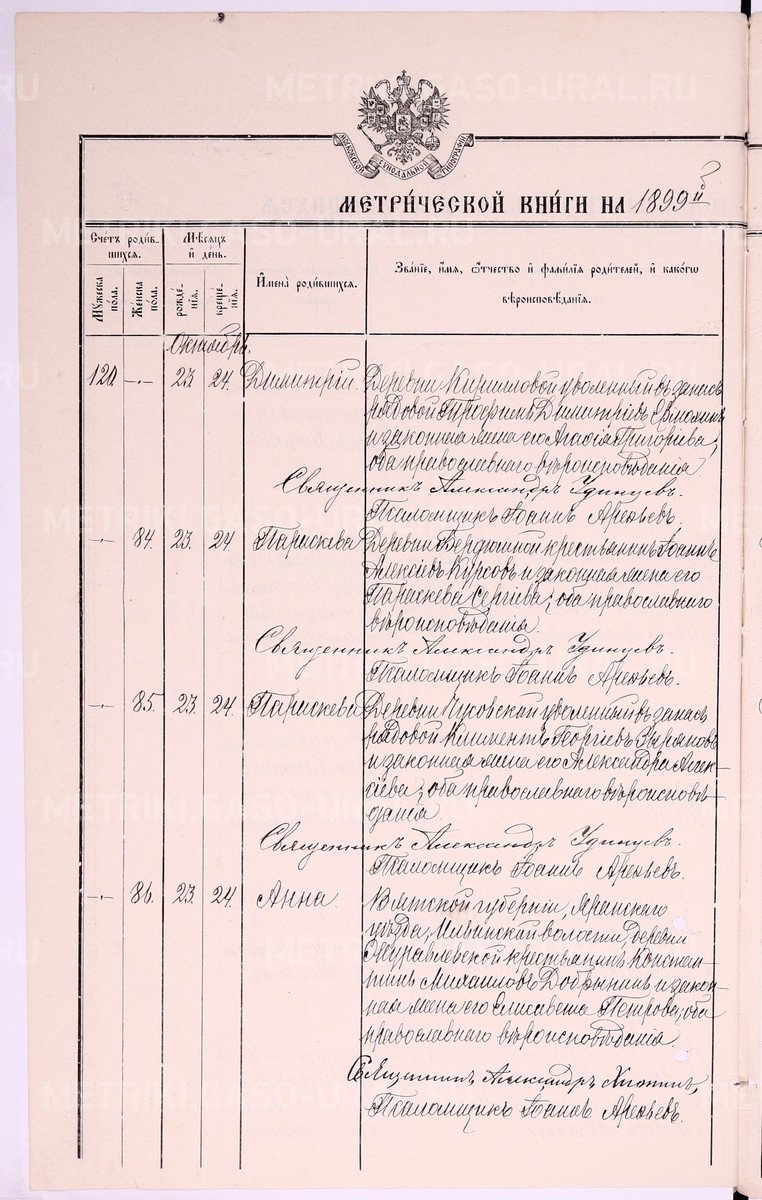 METRIKI.GASO-URAL.RU
МОСКОВСКОЙ СѴНОДАЛЬНОЙ ТИПОГРАФІИ
МЕТРИ́ЧЕСКОЙ КНИ́ГИ НА 1899й
Сче́тъ роди́в-
шихся.
Мꙋ́жеска
пола.
Же́нска
пола.
М́ѣсяцъ
и҆ де́нь.
рожде́-
нїѧ.
креще́-
нїѧ.
И҆мена̀ роди́вшихся.
Зва́нїе, и҆́мѧ, ѻ҆́тчество и҆ фами́лїѧ роди́телей, и҆ како́гѡ
вѣроисповѣ́данїѧ.
Октябрь.
120 —·— 23 24. Димитрій. Деревни Кирилловой уволенный въ запасъ
рядовой Трофимъ Димитріевъ Евлохинъ
и законная жена его Агафія Григоріева,
оба православнаго вѣроисповѣданія.
Священникъ Александръ Удинцевъ.
Псаломщикъ Іоаннъ Арефьевъ.
—·— 84. 23. 24. Параскева Деревни Бердюгиной крестьянинъ Іоаннъ
Алексіевъ Курсовъ и законная жена его
Параскева Сергіева; оба православнаго
вѣроисповѣданія.
Священникъ Александръ Удинцевъ.
Псаломщикъ Іоаннъ Арефьевъ.
—·— 85. 23. 24. Параскева Деревни Чусовской уволенный въ запасъ
рядовой Климентъ Георгіевъ Зыряновъ
и законная жена его Александра Алек-
сіева; оба православнаго вѣроисповѣ-
данія.
Священникъ Александръ Удинцевъ.
Псаломщикъ Іоаннъ Арефьевъ.
—·— 86. 23. 24 Анна. Вятской губерніи, Яранскаго
уѣзда, Ильинской волости, деревни
Журавлевской крестьянинъ Констан-
тинъ Михаиловъ Добрынинъ и закон-
ная жена его Елисавета Петрова; оба
православнаго вѣроисповѣданія.
Священникъ Александръ
Псаломщикъ Іоаннъ Арефьевъ.